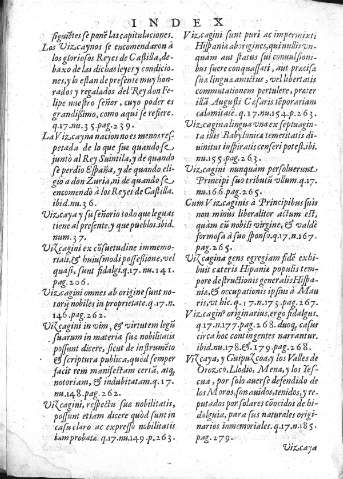 INDEX
siguiẽtes se ponẽ las capitulaciones.
Los Vizcaynos se encomendaron à
los gloriosos Reyes de Castilla, de-
baxo de las dichas leyes y condicio-
nes, y lo estan de presente muy hon-
rados y regalados del Rey don Fe-
lipe nuestro señor, cuyo poder es
grandissimo, como aqui se refiere.
q.17.nu.35.pag.239.
La Vizcaya nacion no es menos res-
petada de lo que fue quando se
juntò al Rey Suintila, y de quando
se perdio España, y de quando eli-
gio a don Zuria, ni de quando se
encomendò à los Reyes de Castilla.
ibid.nu.36.
Vizcaya y su señorio todo que leguas
tiene al presente, y que pueblos. ibid.
num.37.
Vizcagini ex cõsuetudine immemo-
riali, & huiusmodi possessione, vel
quasi, sunt fidalgi. q.17.nu.141.
pag.206.
Vizcagini omnes ab origine sunt no-
torij nobiles in proprietate. q.17.n.
146.pag.262.
Vizcagini in vim, & virtutem legũ
suarum in materia suæ nobilitatis
possunt dicere, sicut de instrumẽto
& scriptura publica, quòd semper
facit rem manifestam certã, atq;
notoriam, & indubitatam. q.17.
nu.148.pag.262.
Vizcagini, respectu suæ nobilitatis,
possunt etiam dicere quòd sunt in
casu claro ac expresso nobilitatis
iam probatæ. q.17.nu.149.p.263.
Vizcagini sunt puri ac impermixti
Hispania aborigines, qui nullis vn-
quam aut flatus sui conuulsioni-
bus fuere conquassati, aut præcisa
suæ lingua amictus, vel libertatis
commutationem pertulere, præter
illã Augusti Cæsaris tẽporariam
calamitatẽ. q.17.nu.154.p.263.
Vizcagina lingua vna ex septuagin-
ta illis Babylonicæ temeritatis di-
uinitus inspiratis censeri potest. ibi.
nu.155.pag.263.
Vizcagini nunquam persoluerunt
Principi suo tributũ vllum. q.17.
nu.166.pag.265.
Cum Vizcaginis à Principibus suis
non minus liberaliter actum est,
quàm cũ nobili virgine, & valdè
formosa à suo sponso. q.17.n.167.
pag.265.
Vizcagina gens egregiam fidẽ exhi-
buit cæteris Hispaniæ populis tem-
pore destructionis generalis Hispa-
niæ, & occupationis ipsius à Mau
ris, vt hic. q.17.n.173.pag.267.
Vizcaginꝰ originarius, ergo fidalgus,
q.17.n.177.pag.268. duoq; casus
circa hoc contingentes narrantur.
ibid.nu.178.&.179.pag.268.
Vizcaya, y Guipuzcoa, y los Valles de
Orozco, Llodio, Mena, y los Tes-
cua, por solo auerse defendido de
los Moros, son auidos, tenidos, y re-
putados por solares cõocidos de hi-
dalguia, para sus naturales origi-
narios immemoriales. q.17.n.185.
pag.279.
Vizcaya